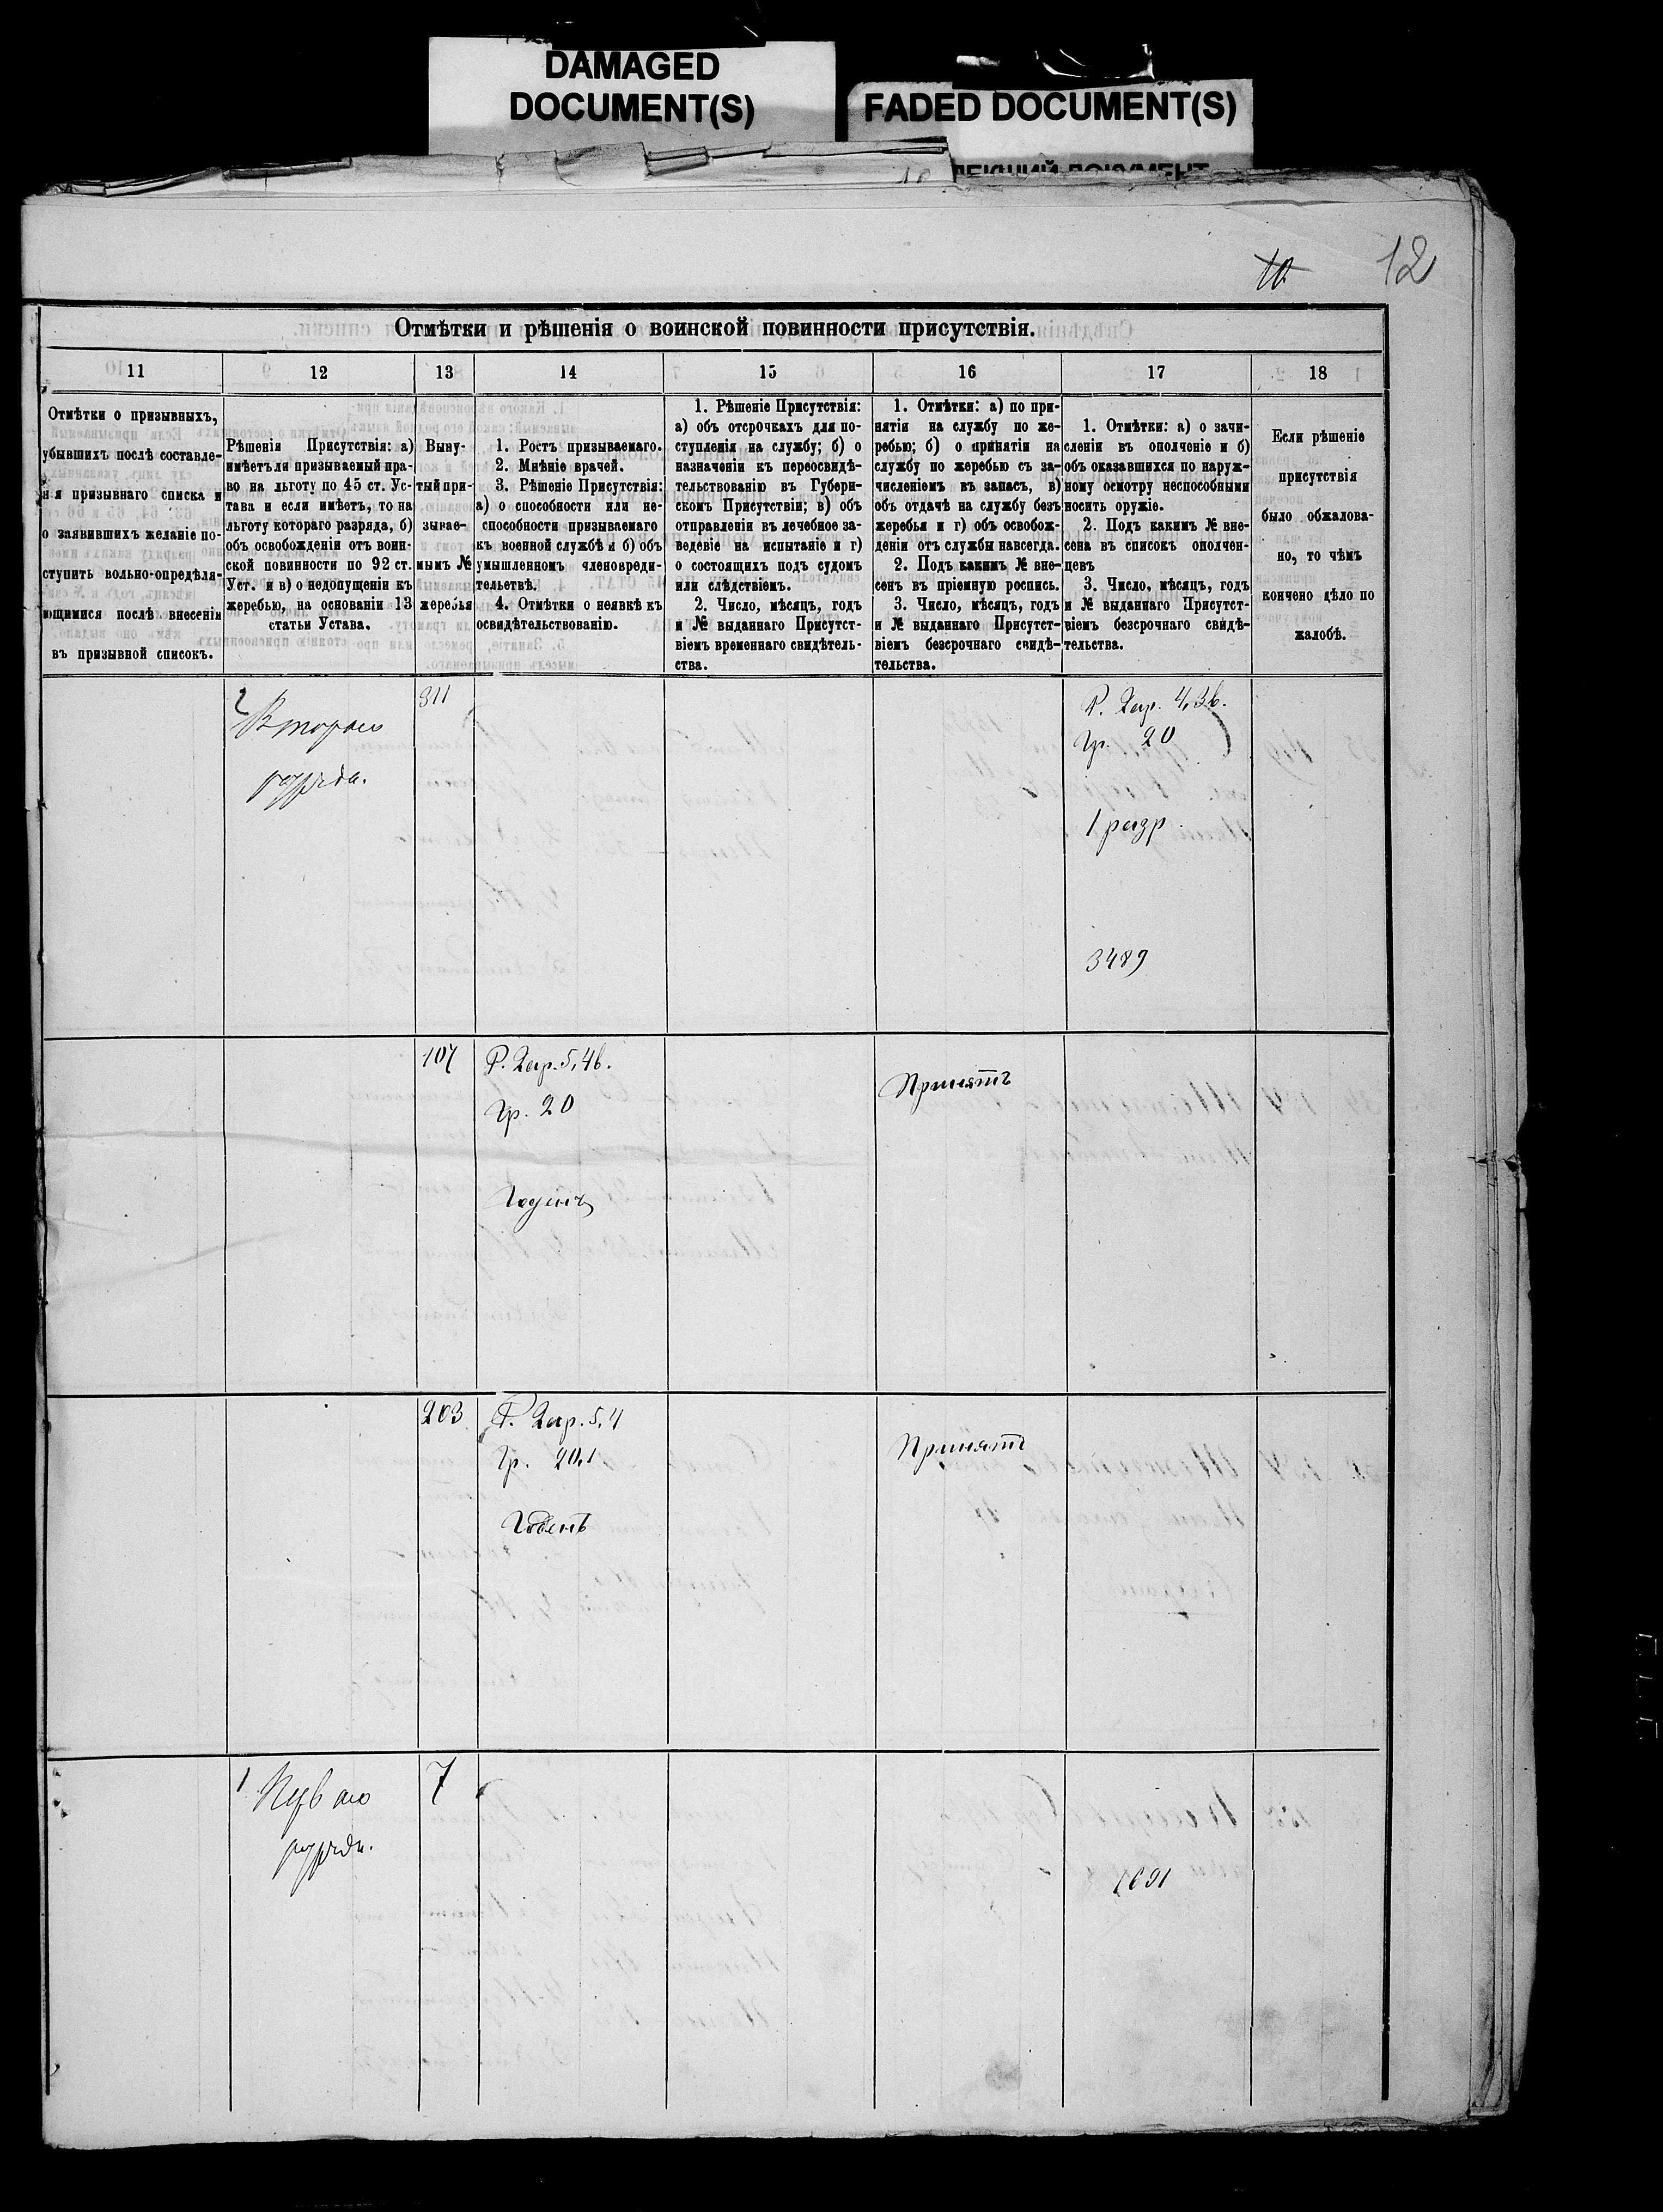 DAMAGED
DOCUMENT(S)
FADED DOCUMENT(S)
12
Отмѣтки и рѣшенія о воинской повинности присутствія.
11
12
13
14
15
16
17
18
Отмѣтки о призывныхъ,
убывшихъ послѣ составле-
нія призывнаго списка и
о заявившихъ желаніе по-
ступить вольно-опредѣля-
ющимися послѣ внесенія
въ призывной списокъ.
Рѣшенія Присутствія: а)
имѣетъ ли призываемый пра-
во на льготу по 45 ст. Ус-
тава и если имѣетъ, то на
льготу котораго разряда, б)
объ освобожденіи отъ воин-
ской повинности по 92 ст.
Уст. и в) о недопущеніи къ
жеребью, на основаніи 13
статьи Устава.
Выну-
тый при-
зывае-
мымъ №
жеребья
1. Ростъ призываемаго.
2. Мнѣніе врачей.
3. Рѣшеніе Присутствія:
а) о способности или не-
способности призываемаго
къ военной службѣ и б) объ
умышленномъ членовреди-
тельствѣ.
4. Отмѣтки о неявкѣ къ
освидѣтельствованію.
1. Рѣшеніе Присутствія:
а) объ отсрочкахъ для по-
ступленія на службу; б) о
назначеніи къ переосвидѣ-
тельствованію въ Губерн-
скомъ Присутствіи; в) объ
отправленіи въ лечебное за-
веденіе на испытаніе и г)
о состоящихъ подъ судомъ
или слѣдствіемъ.
2. Число, мѣсяцъ, годъ
и № выданнаго Присутст-
віемъ временнаго свидѣтель-
ства.
1. Отмѣтки: а) по при-
нятіи на службу по же-
ребью; б) о принятіи на
службу по жеребью съ за-
численіемъ въ запасъ, в)
объ отдачѣ на службу безъ
жеребья и г) объ освобож-
деніи отъ службы навсегда.
2. Подъ какимъ № вне-
сенъ въ пріемную роспись.
3. Число, мѣсяцъ, годъ
и № выданнаго Присутст-
віемъ безсрочнаго свидѣ-
тельства.
1. Отмѣтки: а) о зачи-
сленіи въ ополченіе и б)
объ оказавшихся по наруж-
ному осмотру неспособными
носить оружіе.
2. Подъ какимъ № вне-
сена въ списокъ ополчен-
цевъ
3. Число, мѣсяцъ, годъ
и № выданнаго Присутст-
віемъ безсрочнаго свидѣ-
тельства.
Если рѣшеніе
присутствія
было обжалова-
но, то чѣмъ
кончено дѣло по
жалобѣ.
2
Втораго
разряда.
311
Р. 2ар. 4,3в.
Гр. 20
1 разр.
3489
107
Р. 2ар. 5,4в.
Гр. 20
Годенъ
Принятъ
203
Р. 2ар. 5,4
Гр. 20,1
Годенъ
Принятъ
1
Перваго
разряда.
7
1691